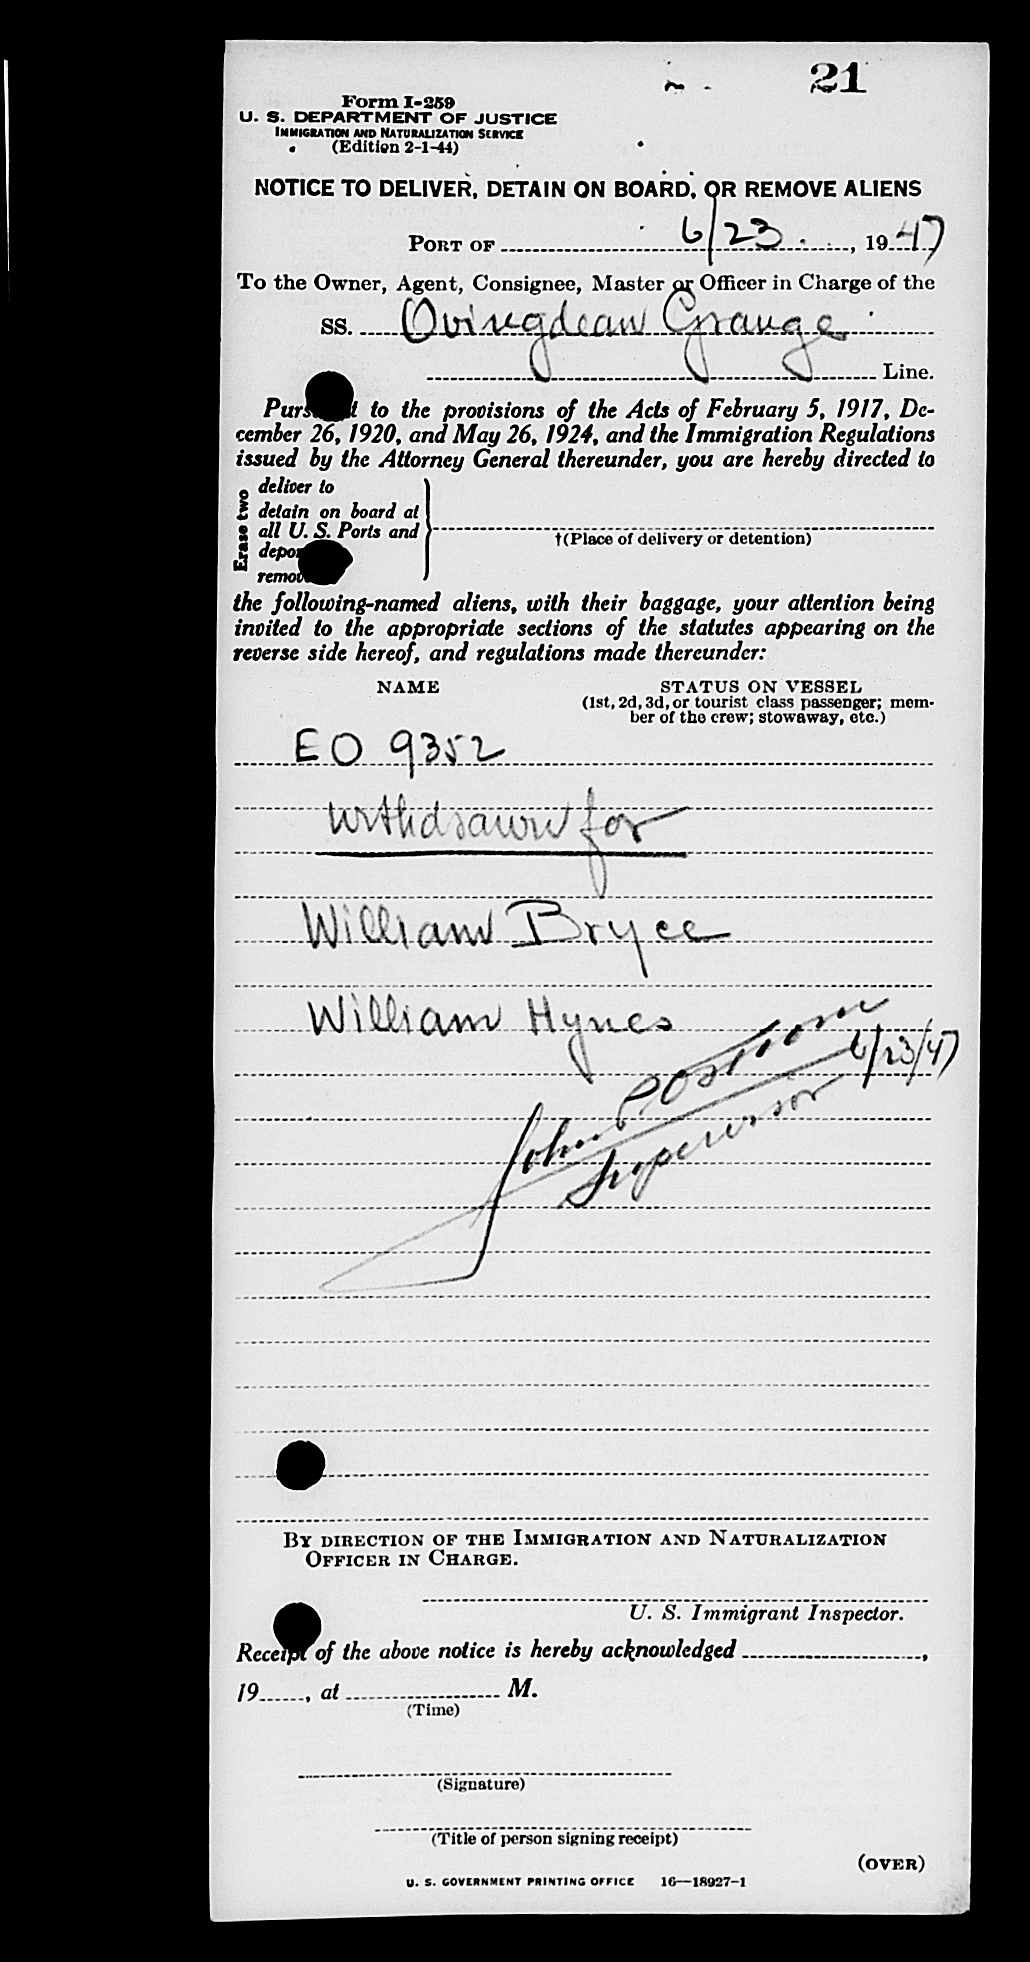 21
Form I-259
U. S. DEPARTMENT OF JUSTICE
IMMIGRATION AND NATURALIZATION SERVICE
(Edition 2-1-44)
NOTICE TO DELIVER, DETAIN ON BOARD, OR REMOVE ALIENS
PORT OF 6/23, 1947
To the Owner, Agent, Consignee, Master or Officer in Charge of the
SS. Ovingdean Grange
Line.
Pursuant to the provisions of the Acts of February 5, 1917, De-
cember 26, 1920, and May 26, 1924, and the Immigration Regulations
issued by the Attorney General thereunder, you are hereby directed to
Erase two
deliver to
detain on board at
all U. S. Ports and
†(Place of delivery or detention)
the following-named aliens, with their baggage, your attention being
invited to the appropriate sections of the statutes appearing on the
reverse side hereof, and regulations made thereunder:
NAME STATUS ON VESSEL
(1st, 2d, 3d, or tourist class passenger; mem-
ber of the crew; stowaway, etc.)
EO 9352
withdrawn for
William Bryce
William Hynes
6/23/47
John
Supervisor
BY DIRECTION OF THE IMMIGRATION AND NATURALIZATION
OFFICER IN CHARGE.
U. S. Immigrant Inspector.
Receipt of the above notice is hereby acknowledged,
19, at M.
(Time)
(Signature)
(Title of person signing receipt)
(OVER)
U. S. GOVERNMENT PRINTING OFFICE 16—18927-1